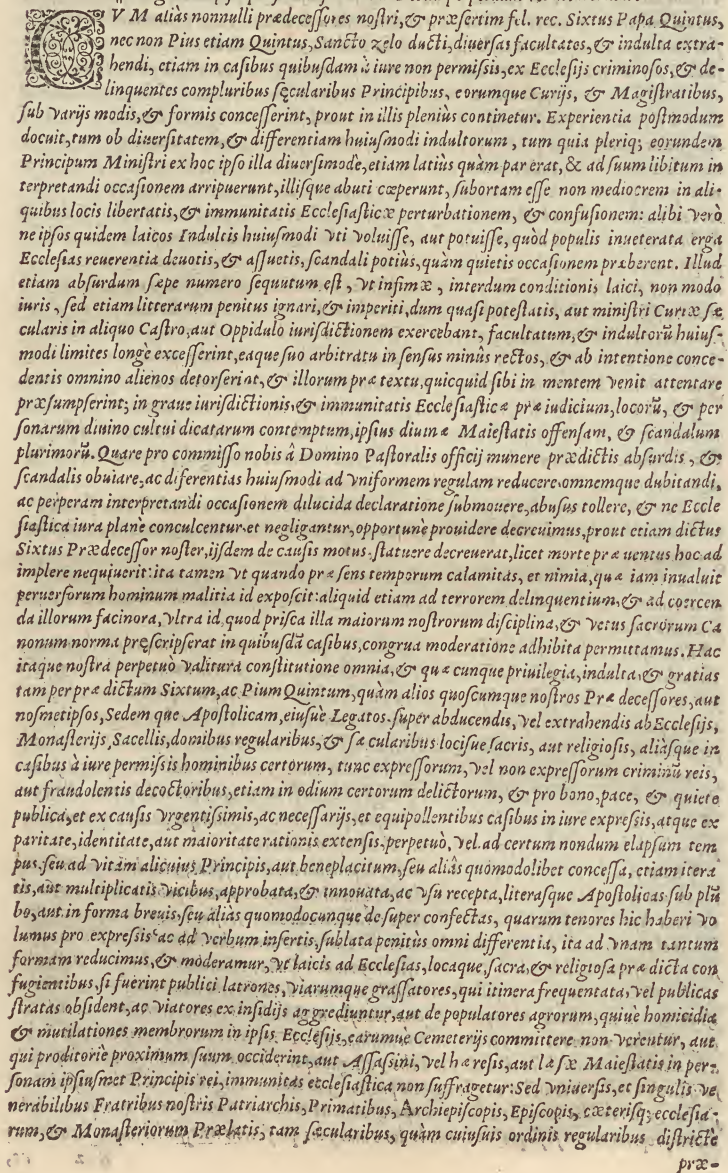 CVM aliàs nonnulli prædecessores nostri, & præsertim fel. rec. Sixtus Papa Quintus,
nec non Pius etiam Quintus, Sancto zelo ducti, diuersas facultates, & indulta extra-
hendi, etiam in casibus quibusdam à iure non permissis, ex Ecclesijs criminosos, & de-
linquentes compluribus sęcularibus Principibus, eorumque Curijs, & Magistratibus,
sub varijs modis, & formis concesserint, prout in illis plenius continetur. Experientia postmodum
docuit, tum ob diuersitatem, & differentiam huiusmodi indultorum, tum quia pleriq; eorundem
Principum Ministri ex hoc ipso illa diuersimode, etiam latiùs quàm par erat, & ad suum libitum in
terpretandi occasionem arripuerunt, illisque abuti cœperunt, subortam esse non mediocrem in ali-
quibus locis libertatis, & immunitatis Ecclesiasticæ perturbationem, & confusionem: alibi verò
ne ipsos quidem laicos Indultis huiusmodi vti voluisse, aut potuisse, quòd populis inueterata erga
Ecclesias reuerentia deuotis, & assuetis, scandali potiùs, quàm quietis occasionem præberent. Illud
etiam absurdum sæpe numero sequutum est, vt infimæ, interdum conditionis laici, non modo
iuris, sed etiam litterarum penitus ignari, & imperiti, dum quasi potestatis, aut ministri Curiæ sæ
cularis in aliquo Castro, aut Oppidulo iurisdictionem exercebant, facultatum, & indultorũ huius-
modi limites longè excesserint, eaque suo arbitratu in sensus minùs rectos, & ab intentione conce-
dentis omnino alienos detorserint, & illorum præ textu, quicquid sibi in mentem venit attentare
præsumpserint; in graue iurisdictionis, & immunitatis Ecclesiasticæ præ iudicium, locorũ, & per
sonarum diuino cultui dicatarum contemptum, ipsius diuinæ Maiestatis offensam, & scandalum
plurimorũ. Quare pro commisso nobis â Domino Pastoralis officij munere prædictis absurdis, &
scandalis obuiare, ac diferentias huiusmodi ad vniformem regulam reducere, omnemque dubitandi,
ac perperam interpretandi occasionem dilucida declaratione submouere, abusus tollere, & ne Eccle
siastica iura plane conculcentur et negligantur, opportunè prouidere decreuimus, prout etiam dictus
Sixtus Prædecessor noster, ijsdem de causis motus, statuere decreuerat, licet morte præ uentus hoc ad
implere nequiuerit: ita tamen vt quando præ sens temporum calamitas, et nimia, quæ iam inualuit
peruersorum hominum malitia id exposcit: aliquid etiam ad terrorem delinquentium, & ad coercen
da illorum facinora, vltra id quod prisca illa maiorum nostrorum disciplina, & vetus sacrorum Ca
nonum norma pręscripserat in quibusdã casibus, congrua moderatione adhibita permittamus. Hac
itaque nostra perpetuò valitura constitutione omnia, & quæ cunque priuilegia, indulta, & gratias
tam per præ dictum Sixtum, ac Pium Quintum, quàm alios quoscumque nostros Præ decessores, aut
nosmetipsos, Sedem que Apostolicam, eiusue Legatos super abducendis, vel extrahendis ab Ecclesijs,
Monasterijs, Sacellis, domibus regularibus, & sæ cularibus locisue sacris, aut religiosis, aliâsque in
casibus à iure permissis hominibus certorum, tunc expressorum, vel non expressorum criminũ reis,
aut fraudolentis decoctoribus, etiam in odium certorum delictorum, & pro bono, pace, & quiete
publica, et ex causis vrgentissimis, ac necessarijs, et equipollentibus casibus in iure expressis, atque ex
paritate, identitate, aut maioritate rationis extensis, perpetuò, vel ad certum nondum elapsum tem
pus, seu ad vitam alicuius Principis, aut beneplacitum, seu aliâs quomodolibet concessa, etiam itera
tis, aut multiplicatis vicibus, approbata, & innouata, ac vsu recepta, literasque Apostolicas sub plũ
bo, aut in forma breuis, seu aliâs quomodocunque de super confectas, quarum tenores hic haberi vo
lumus pro expressis ac ad verbum insertis, sublata penitùs omni differentia, ita ad vnam tantum
formam reducimus, & moderamur, vt laicis ad Ecclesias, locaque, sacra, & religiosa præ dicta con
fugientibus, si fuerint publici latrones, viarumque grassatores, qui itinera frequentata, vel publicas
stratas obsident, ac viatores ex insidijs aggrediuntur, aut de populatores agrorum, quiue homicidia
& mutilationes membrorum in ipsis Ecclesijs, earumue Cemeterijs committere non verentur, aut
qui proditorie proximum suum occiderint, aut Assassini, vel hæresis, aut læsæ Maiestatis in per-
sonam ipsiusmet Principis rei, immunitas ecclesiastica non suffragetur: Sed vniuersis, et singulis ve
nerabilibus Fratribus nostris Patriarchis, Primatibus, Archiepiscopis, Episcopis, cæterisq; ecclesia-
rum, & Monasteriorum Prælatis, tam sæcularibus, quàm cuiusuis ordinis regularibus districtè
præ-